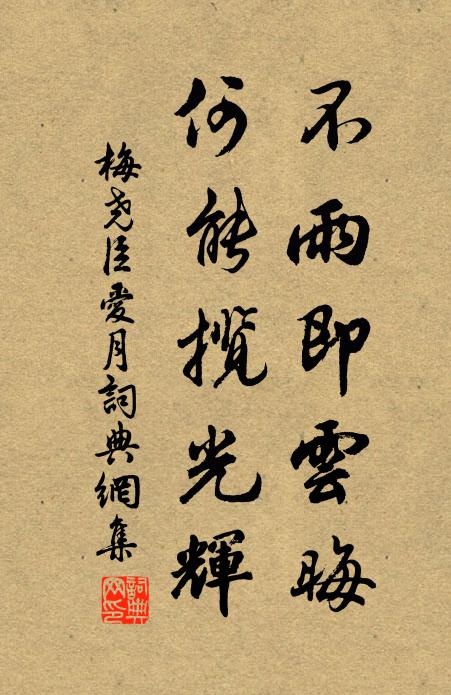 不雨即雲晦
何能攬光輝
梅尧臣愛月詞典網集
詞典网印